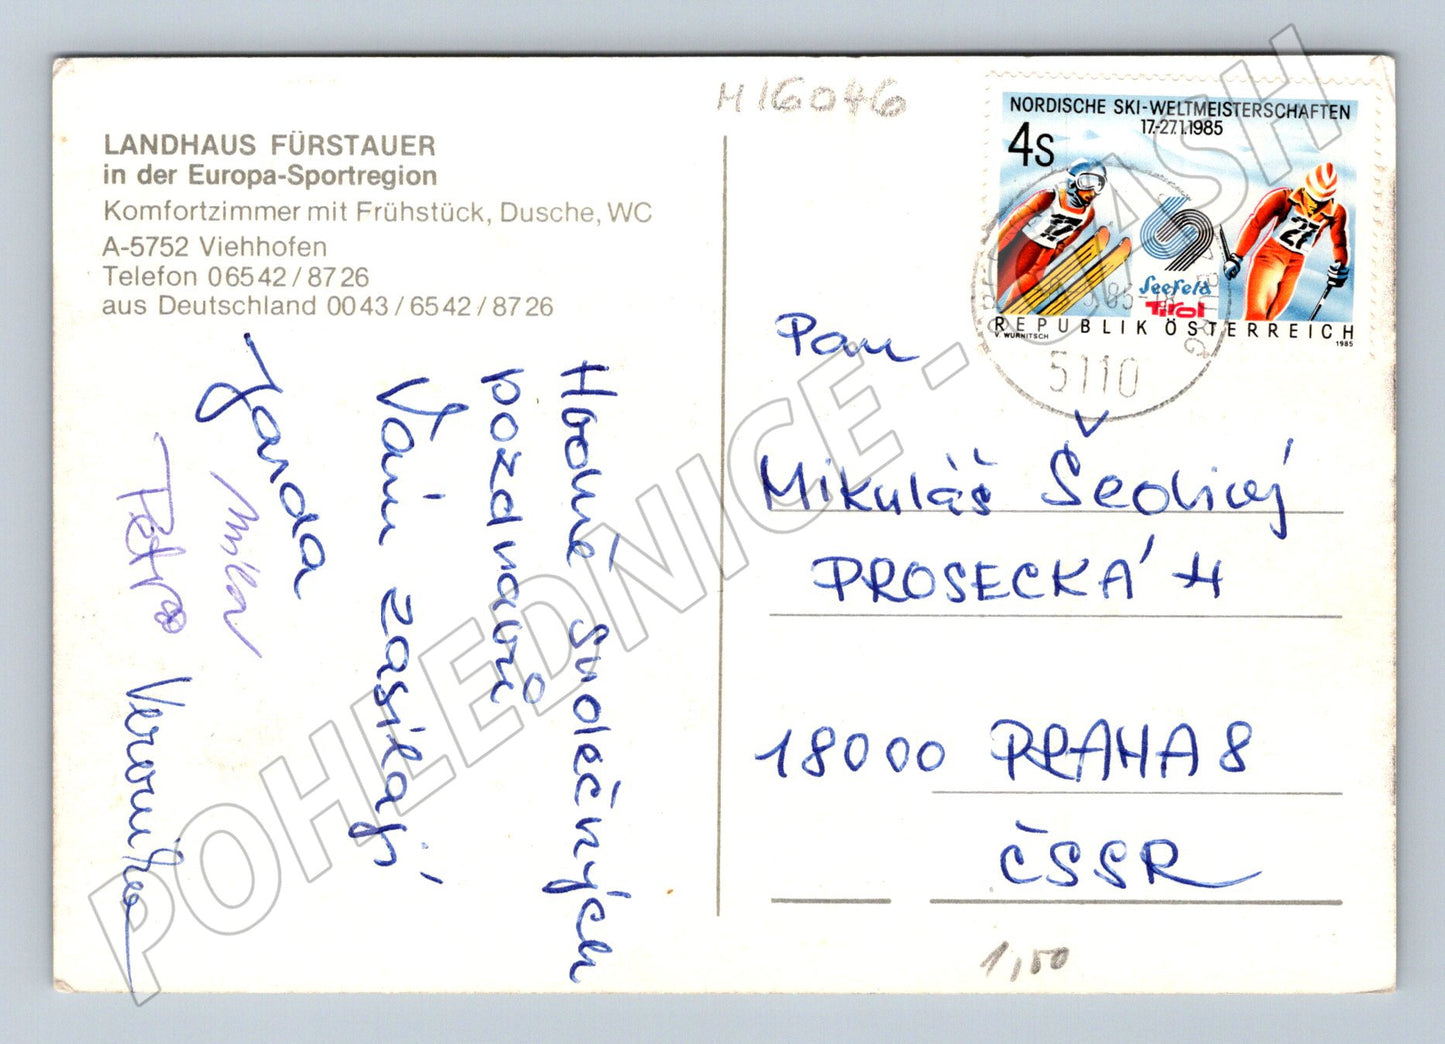 H16046
LANDHAUS FÜRSTAUER
in der Europa-Sportregion
Komfortzimmer mit Frühstück, Dusche, WC
A-5752 Viehhofen
Telefon 06542/8726
aus Deutschland 0043/6542/8726
Hodně společných
pozdravů
Vám zasílají
Jarda
Milan
Petra
Veronika
NORDISCHE SKI-WELTMEISTERSCHAFTEN
17.-27.1.1985
4S
17
27
Seefeld
Tirol
REPUBLIK ÖSTERREICH
V. WURNITSCH
1985
5110
Pan
Mikuláš Šedivý
PROSECKÁ 4
18000 PRAHA 8
ČSSR
1,50
POHLEDNICE - CASH